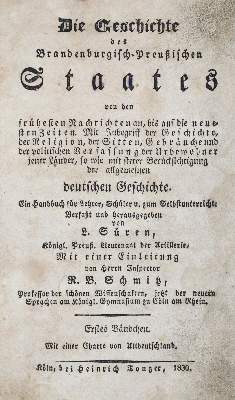 Die Geschichte
des
Brandenburgisch-Preußischen
Staates
von den
frühesten Nachrichten an, bis auf die neue-
sten Zeiten. Mit Inbegriff der Geschichte,
der Religion, der Sitten, Gebräuche und
der politischen Verfassung der Urbewohner
jener Länder, so wie mit steter Berücksichtigung
der allgemeinen
deutschen Geschichte.
Ein Handbuch für Lehrer, Schüler u. zum Selbstunterricht
Verfaßt und herausgegeben
von
L. Süren,
Königl. Preuß. Lieutenant der Artillerie.
Mit einer Einleitung
von Herrn Inspector
R. B. Schmitz,
Professor der schönen Wissenschaften, jetzt der neuern
Sprachen am Königl. Gymnasium zu Cöln am Rhein.
Erstes Bändchen.
Mit einer Charte von Altdeutschland.
Köln, bei Heinrich Tonger, 1830.